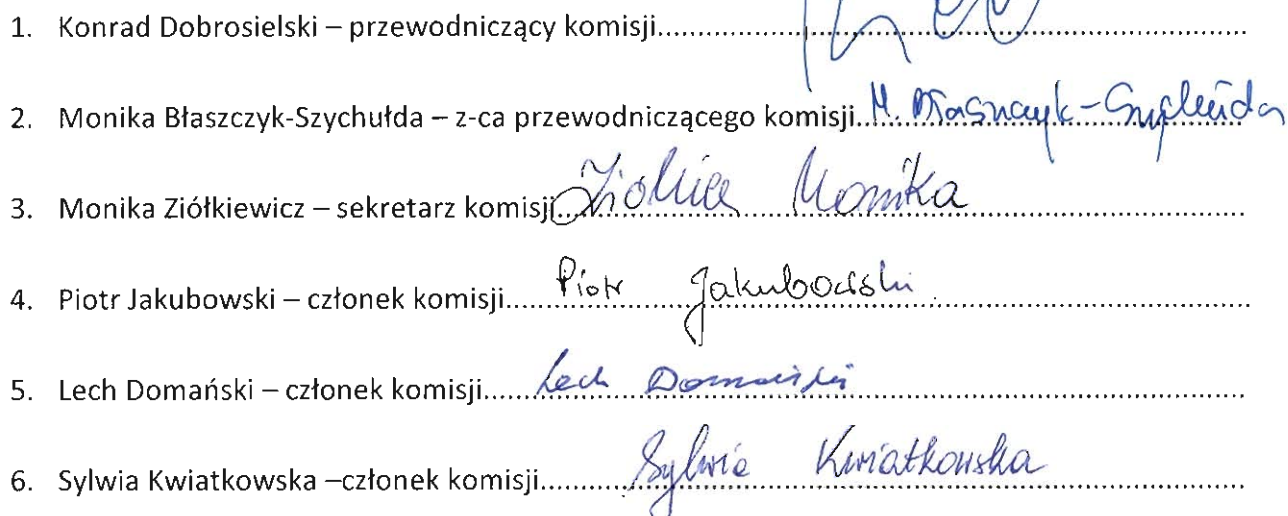 1. Konrad Dobrosielski – przewodniczący komisji
2. Monika Błaszczyk-Szychułda – z-ca przewodniczącego komisji M. Błaszczyk-Szychułda
3. Monika Ziółkiewicz – sekretarz komisji Monika
4. Piotr Jakubowski – członek komisji Piotr Jakubowski
5. Lech Domański – członek komisji Lech Domański
6. Sylwia Kwiatkowska –członek komisji Sylwia Kwiatkowska